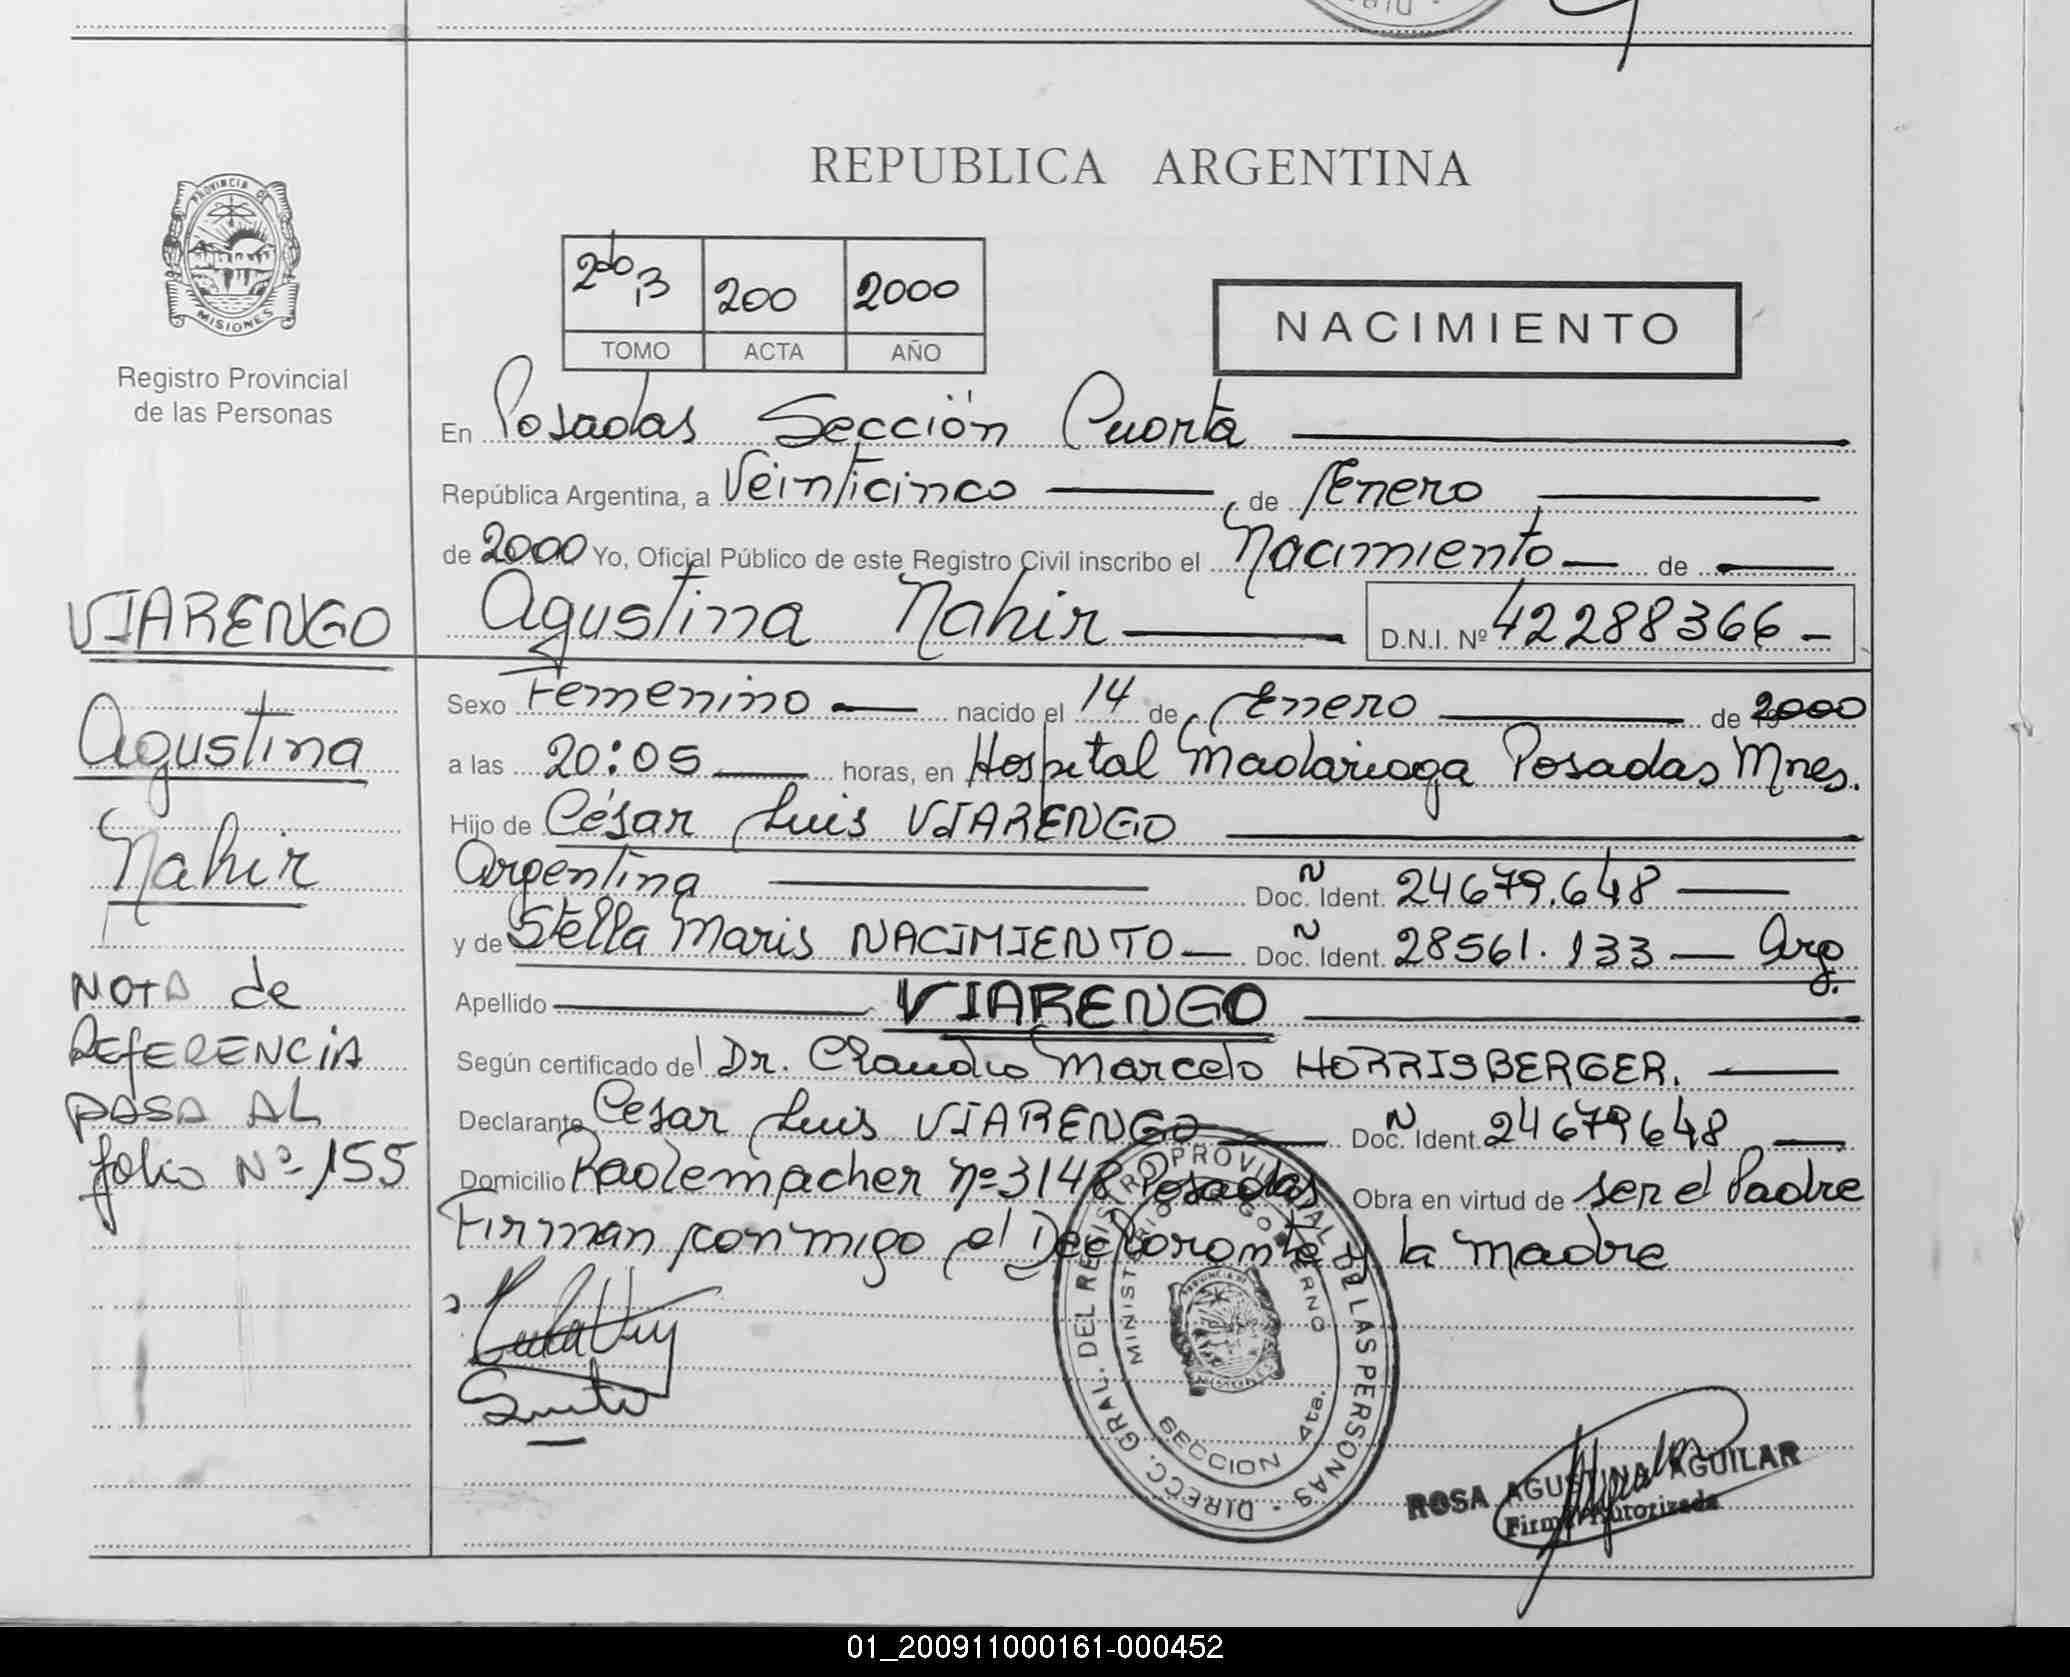 REPUBLICA ARGENTINA
PROVINCIA DE
MISIONES
Registro Provincial
de las Personas
2do B 200 2000
TOMO ACTA AÑO
NACIMIENTO
En Posadas Sección Cuarta
República Argentina, a Veinticinco de Enero
de 2000 Yo, Oficial Público de este Registro Civil inscribo el Nacimiento de
Agustina Nahir D.N.I. Nº 42288366
Sexo Femenino nacido el 14 de Enero de 2000
a las 20:05 horas, en Hospital Madariaga Posadas Mnes.
Hijo de César Luis VIARENGO
Argentina Doc. N Ident. 24679.648
y de Stella Maris NACIMIENTO Doc. N Ident. 28561.133 Arg.
Apellido VIARENGO
Según certificado del Dr. Claudio Marcelo HORRISBERGER.
Declarante Cesar Luis VIARENGO Doc. N Ident. 24679648
Domicilio Rademacher Nº 3148 Posadas Obra en virtud de ser el Padre
Firman conmigo el Declarante y la Madre
VIARENGO
Agustina
Nahir
NOTA de
REFERENCIA
PASA AL
folio Nº 155
DIRECC. GRAL. DEL REGISTRO PROVINCIAL DE LAS PERSONAS
MINISTERIO GOBIERNO
SECCION 4ta.
ROSA AGUSTINA AGUILAR
Firma Autorizada
01_200911000161-000452